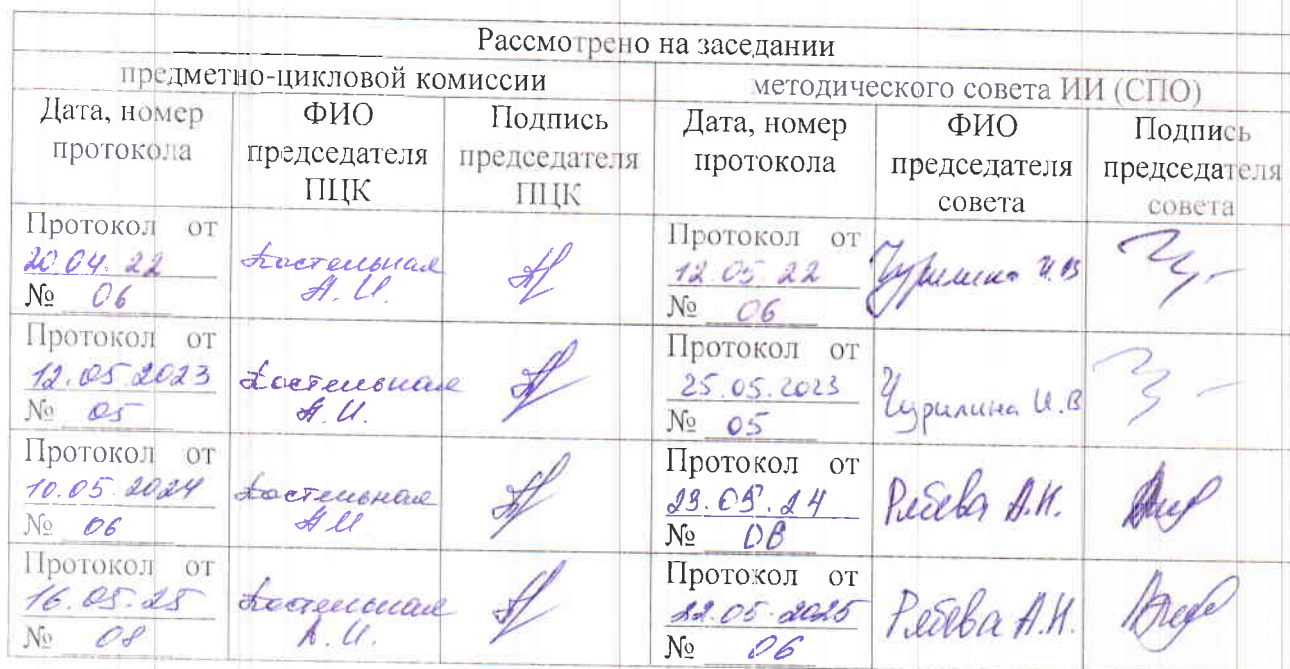 Рассмотрено на заседании
предметно-цикловой комиссии
методического совета ИИ (СПО)
Дата, номер протокола
ФИО председателя ПЦК
Подпись председателя ПЦК
Дата, номер протокола
ФИО председателя совета
Подпись председателя совета
Протокол от
20.04.22
№ 06
Костельная
А. И.
Протокол от
12.05.22
№ 06
Чурилина И.В
Протокол от
12.05.2023
№ 05
Костельная
А. И.
Протокол от
25.05.2023
№ 05
Чурилина И.В
Протокол от
10.05.2024
№ 06
Костельная
А И
Протокол от
23.05.24
№ 06
А.Н.
Протокол от
16.05.25
№ 08
Костельная
А. И.
Протокол от
22.05.2025
№ 06
А.Н.